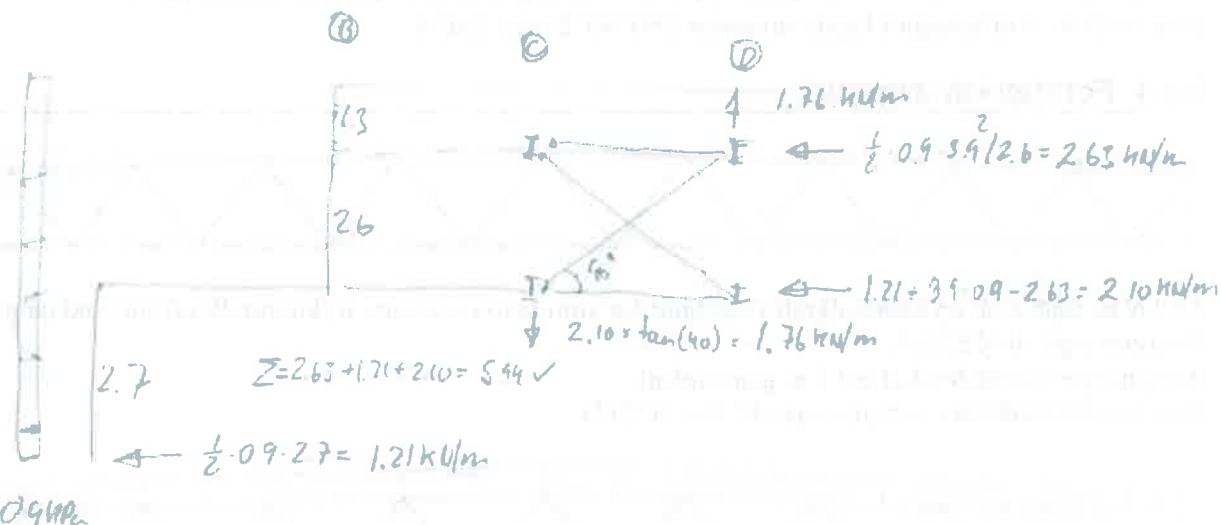 B C D
1.76 kN/m
1.3
½·0.9·3.9²/2.6 = 2.63 kN/m
2.6
40°
1.21 + 3.9·0.9 - 2.63 = 2.10 kN/m
2.10 × tan(40) = 1.76 kN/m
2.7
Σ=2.63+1.21+2.10= 5.94 ✓
½·0.9·2.7= 1.21 kN/m
0.9 kPa